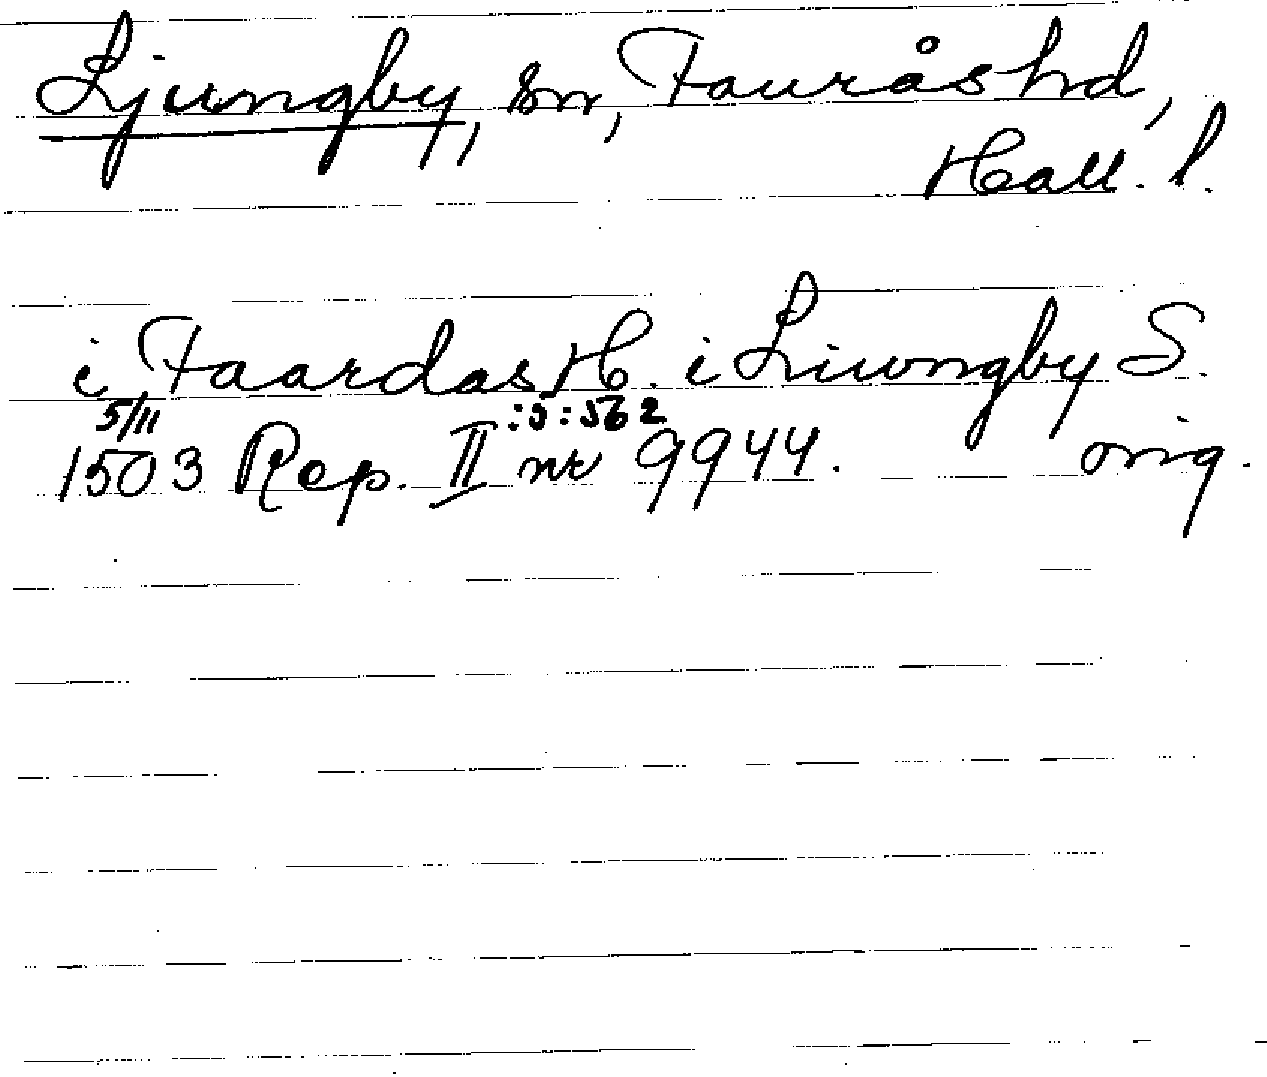 Ljungby, sn, Fauråshd,
Hall. l.
i Faardas H. i Liwngby S.
5/11 :5:562
1503 Rep. II nr 9944. orig.